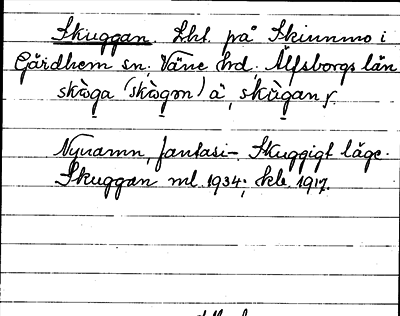 Skuggan. Lht. på Skinnmo i
Gärdhem sn, Väne hd, Älfsborgs län
skòga (skògən) à, skùgan f.
Nynamn, fantasi- Skuggigt läge.
Skuggan ml 1934; skb 1917.